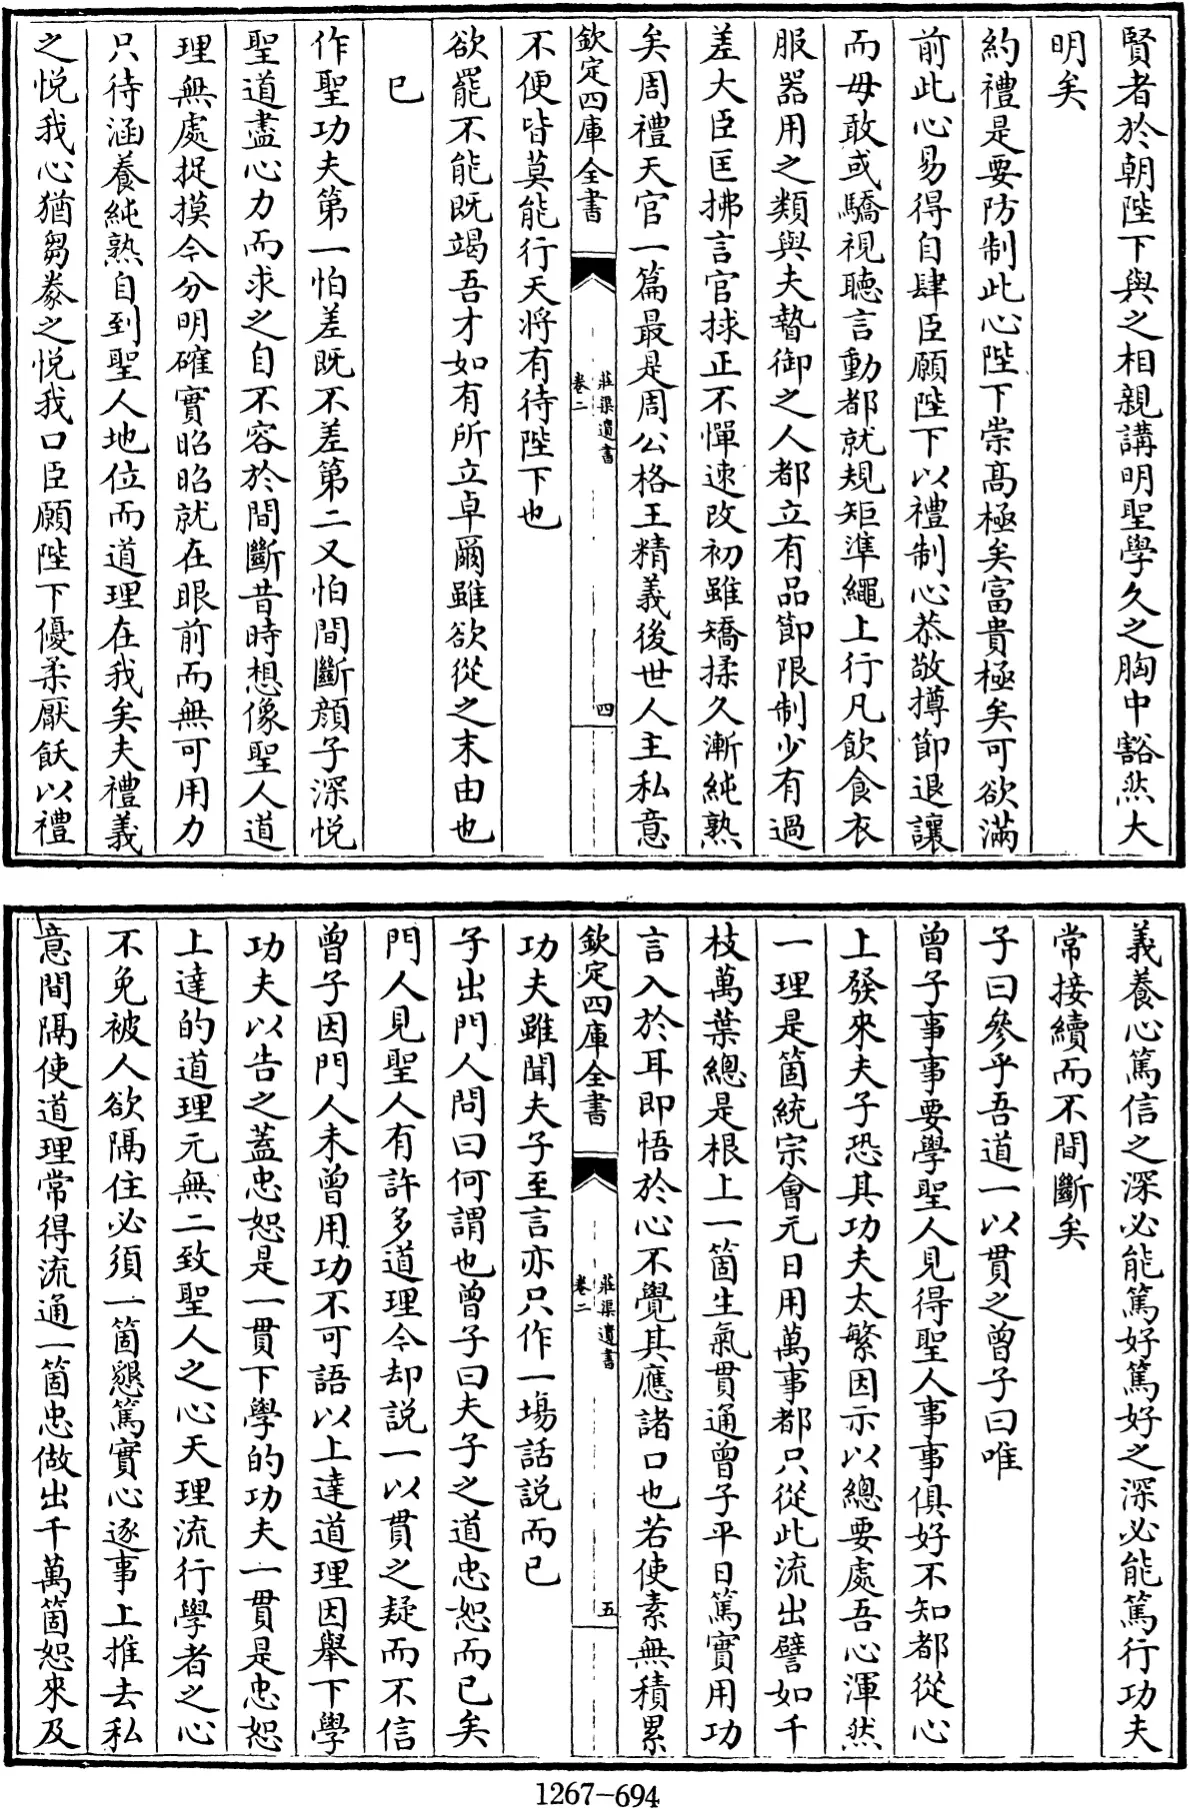 賢者於朝陛下與之相親講明聖學久之胸中豁然大
明矣
約禮是要防制此心陛下崇髙極矣富貴極矣可欲滿
前此心易得自肆臣願陛下以禮制心恭敬撙節退讓
而毋敢或驕視聽言動都就規矩準繩上行凡飲食衣
服器用之類與夫暬御之人都立有品節限制少有過
差大臣匡拂言官捄正不憚速改初雖矯揉久漸純熟
矣周禮天官一篇最是周公格王精義後世人主私意
欽定四庫全書
莊渠遺書
卷二
四
不便皆莫能行天将有待陛下也
欲罷不能既竭吾才如有所立卓爾雖欲從之末由也
已
作聖功夫第一怕差既不差第二又怕間斷顔子深悦
聖道盡心力而求之自不容於間斷昔時想像聖人道
理無處捉摸今分明確實昭昭就在眼前而無可用力
只待涵養純熟自到聖人地位而道理在我矣夫禮義
之悦我心猶芻豢之悦我口臣願陛下優柔厭飫以禮
義養心篤信之深必能篤好篤好之深必能篤行功夫
常接續而不間斷矣
子曰參乎吾道一以貫之曾子曰唯
曾子事事要學聖人見得聖人事事俱好不知都從心
上發來夫子恐其功夫太繁因示以總要處吾心渾然
一理是箇統宗會元日用萬事都只從此流出譬如千
枝萬葉總是根上一箇生氣貫通曾子平日篤實用功
言入於耳即悟於心不覺其應諸口也若使素無積累
欽定四庫全書
莊渠遺書
卷二
五
功夫雖聞夫子至言亦只作一場話説而已
子出門人問曰何謂也曾子曰夫子之道忠恕而已矣
門人見聖人有許多道理今却説一以貫之疑而不信
曾子因門人未曾用功不可語以上達道理因舉下學
功夫以告之蓋忠恕是一貫下學的功夫一貫是忠恕
上達的道理元無二致聖人之心天理流行學者之心
不免被人欲隔住必須一箇懇篤實心逐事上推去私
意間隔使道理常得流通一箇忠做出千萬箇恕來及
1267-694